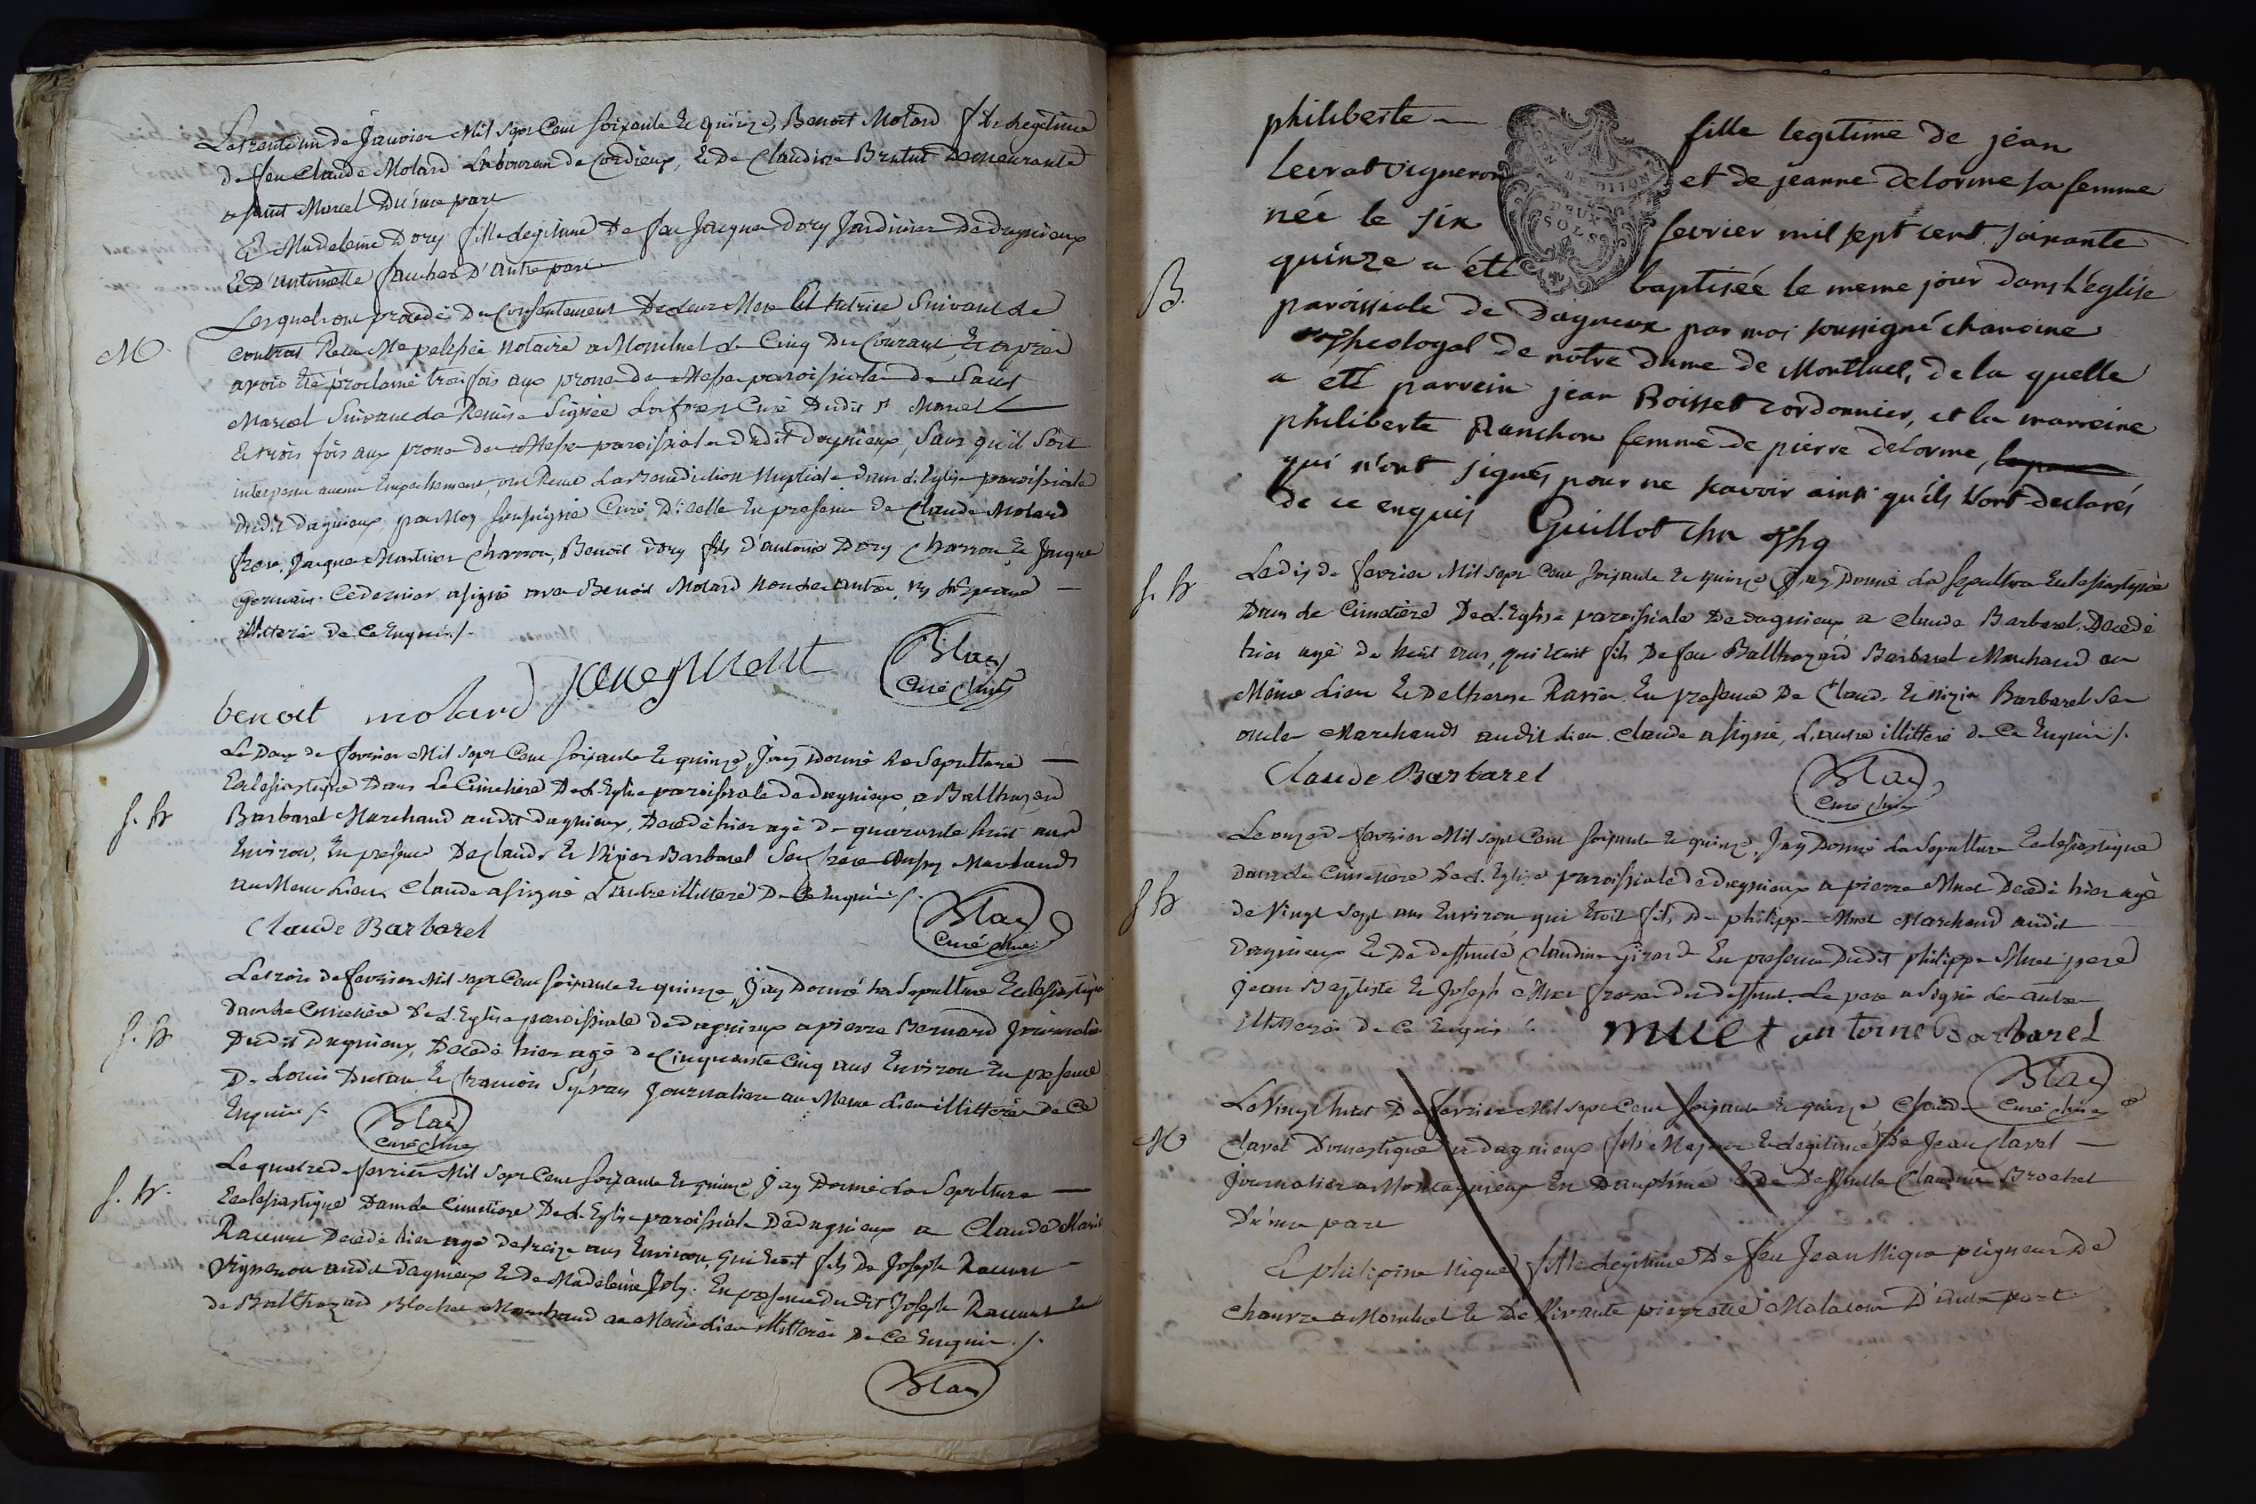 Le trente un de Janvier Mil Sept Cent Soixante Et quinze, Benoit Molard fils legitime
de feu Claude Molard Laboureur de Cordieux, Et De Claudine Brutut Demeurante
a saint Marcel D'ûne part
Et Madeleine Dory fille legitime De feu Jacque Dory Jardinier De dagnieux
Et d'antoinette faucher D'autre part
Lesquels ont procedé Du Consentement De Leur Mere Et tutrice Suivant Le
M.
contrat Recu Me notaire a Montluel Le Cinq Du Courant, Et après
avoir Eté proclamé trois fois aux prone de Messe paroissiale de Saint
Marcel Suivant La Remise Signée Curé Dudit st Marcel
Et trois fois aux prone de Messe paroissiale dudit dagnieux, Sans qu'il Soit
intervenu aucun Empechement, ont Recu La Benediction Nuptiale dans L'Eglise paroissiale
dudit dagnieux par Moy Soussigné Curé D'icelle En presence de Claude Molard
frere, Jacque Martinier Charron, Benoit Dory fils d'antoine Dory Charron, Et Jacque
Ce dernier a signé avec Benoit Molard non les autres,
illitterés de Ce Enquis ./.
benoit molard Blay
Curé
Le Deux de fevrier Mil Sept Cent Soixante Et quinze, J'ay Donné La Sepulture
Eclesiastique Dans Le Cimetiere De L'Eglise paroissiale de dagnieux, a Balthazard
S. B
Barbarel Marchand audit dagnieux, Decedé hier agé de quarante huit ans
Environ, En presence De Claude Et Nizier Barbarel Ses frere Marchands
au Meme Lieu, Claude a Signé L'autre illitteré De Ce Enquis ./.
Claude Barbarel Blay
Curé
Le trois de fevrier Mil Sept Cent Soixante Et quinze, J'ay Donné La Sepulture Eclesiastique
dans Le Cimetiere De L'Eglise paroissiale de dagnieux a pierre Bernard Journalier
S. B
Dudit Dagnieux, Decedé hier agé de Cinquante Cinq ans Environ En presence
De Louis Et francois Journaliers au Meme Lieu illitterés De Ce
Enquis ./. Blay
Curé
Le quatre de fevrier Mil Sept Cent Soixante Et quinze J'ay Donné La Sepulture
S. B.
Eclesiastique Dans Le Cimetiere De L'Eglise paroissiale De dagnieux a Claude Marie
Decedé hier agé de treize ans Environ, qui Etoit fils De Joseph
Vigneron audit dagnieux Et de Madeleine Joly. En presence du dit Joseph Et
de Balthazard Blochet Marchand au Meme Lieu illitterés De Ce Enquis ./.
Blay
philiberte fille legitime de jean
levrat vigneron et de jeanne delorme sa femme
née le six fevrier mil sept cent soixante
B.
quinze a été baptisée le meme jour dans l'église
paroissiale de dagneux par moi soussigné chanoine
theologal de notre dame de Montluel, de la quelle
a été parrein jean Boisset cordonnier, et la marreine
philiberte Ranchon femme de pierre delorme,
qui n'ont signés pour ne scavoir ainsi qu'ils l'ont declarés
de ce enquis Guillot chn thg
S. B
Le dix de fevrier Mil Sept Cent Soixante Et quinze J'ay Donné La sepulture Eclesiastique
Dans Le Cimetiere De L'Eglise paroissiale De dagnieux a Claude Barbarel, Decedé
hier agé de huit ans, qui Etoit fils De feu Balthazard Barbarel Marchand au
Même Lieu Et De En presence De Claude Et Nizier Barbarel Ses
oncles Marchands audit Lieu. Claude a signé, L'autre illitteré de Ce Enquis ./.
Claude Barbarel Blay
Curé
Le onze de fevrier Mil Sept Cent Soixante Et quinze, J'ay Donné La Sepulture Eclesiastique
S B
dans Le Cimetiere De L'Eglise paroissiale de dagnieux a pierre Muet Decedé hier agé
de Vingt Sept ans Environ qui Etoit fils De philippe Muet Marchand audit
Dagnieux Et De deffunte Claudine Girard En presence Dudit philippe Muet pere
Jean Baptiste Et Joseph Muet freres du deffunt. Le pere a Signé Les autres
illitterés de Ce Enquis ./. muet antoine Barbarel
Blay
Curé
Le Vingt huit De fevrier Mil Sept Cent Soixante Et quinze Claude
M
Clavel Domestique a dagnieux fils Majeur Et legitime De Jean Clavel
Journalier a Montagnieux En Dauphiné Et De Deffunte Claudine Brochet
D'ûne part
Et philipine Nique fille legitime De feu Jean Nique peigneur De
chanvre a Montluel Et De Vivante pierrette D'autre part